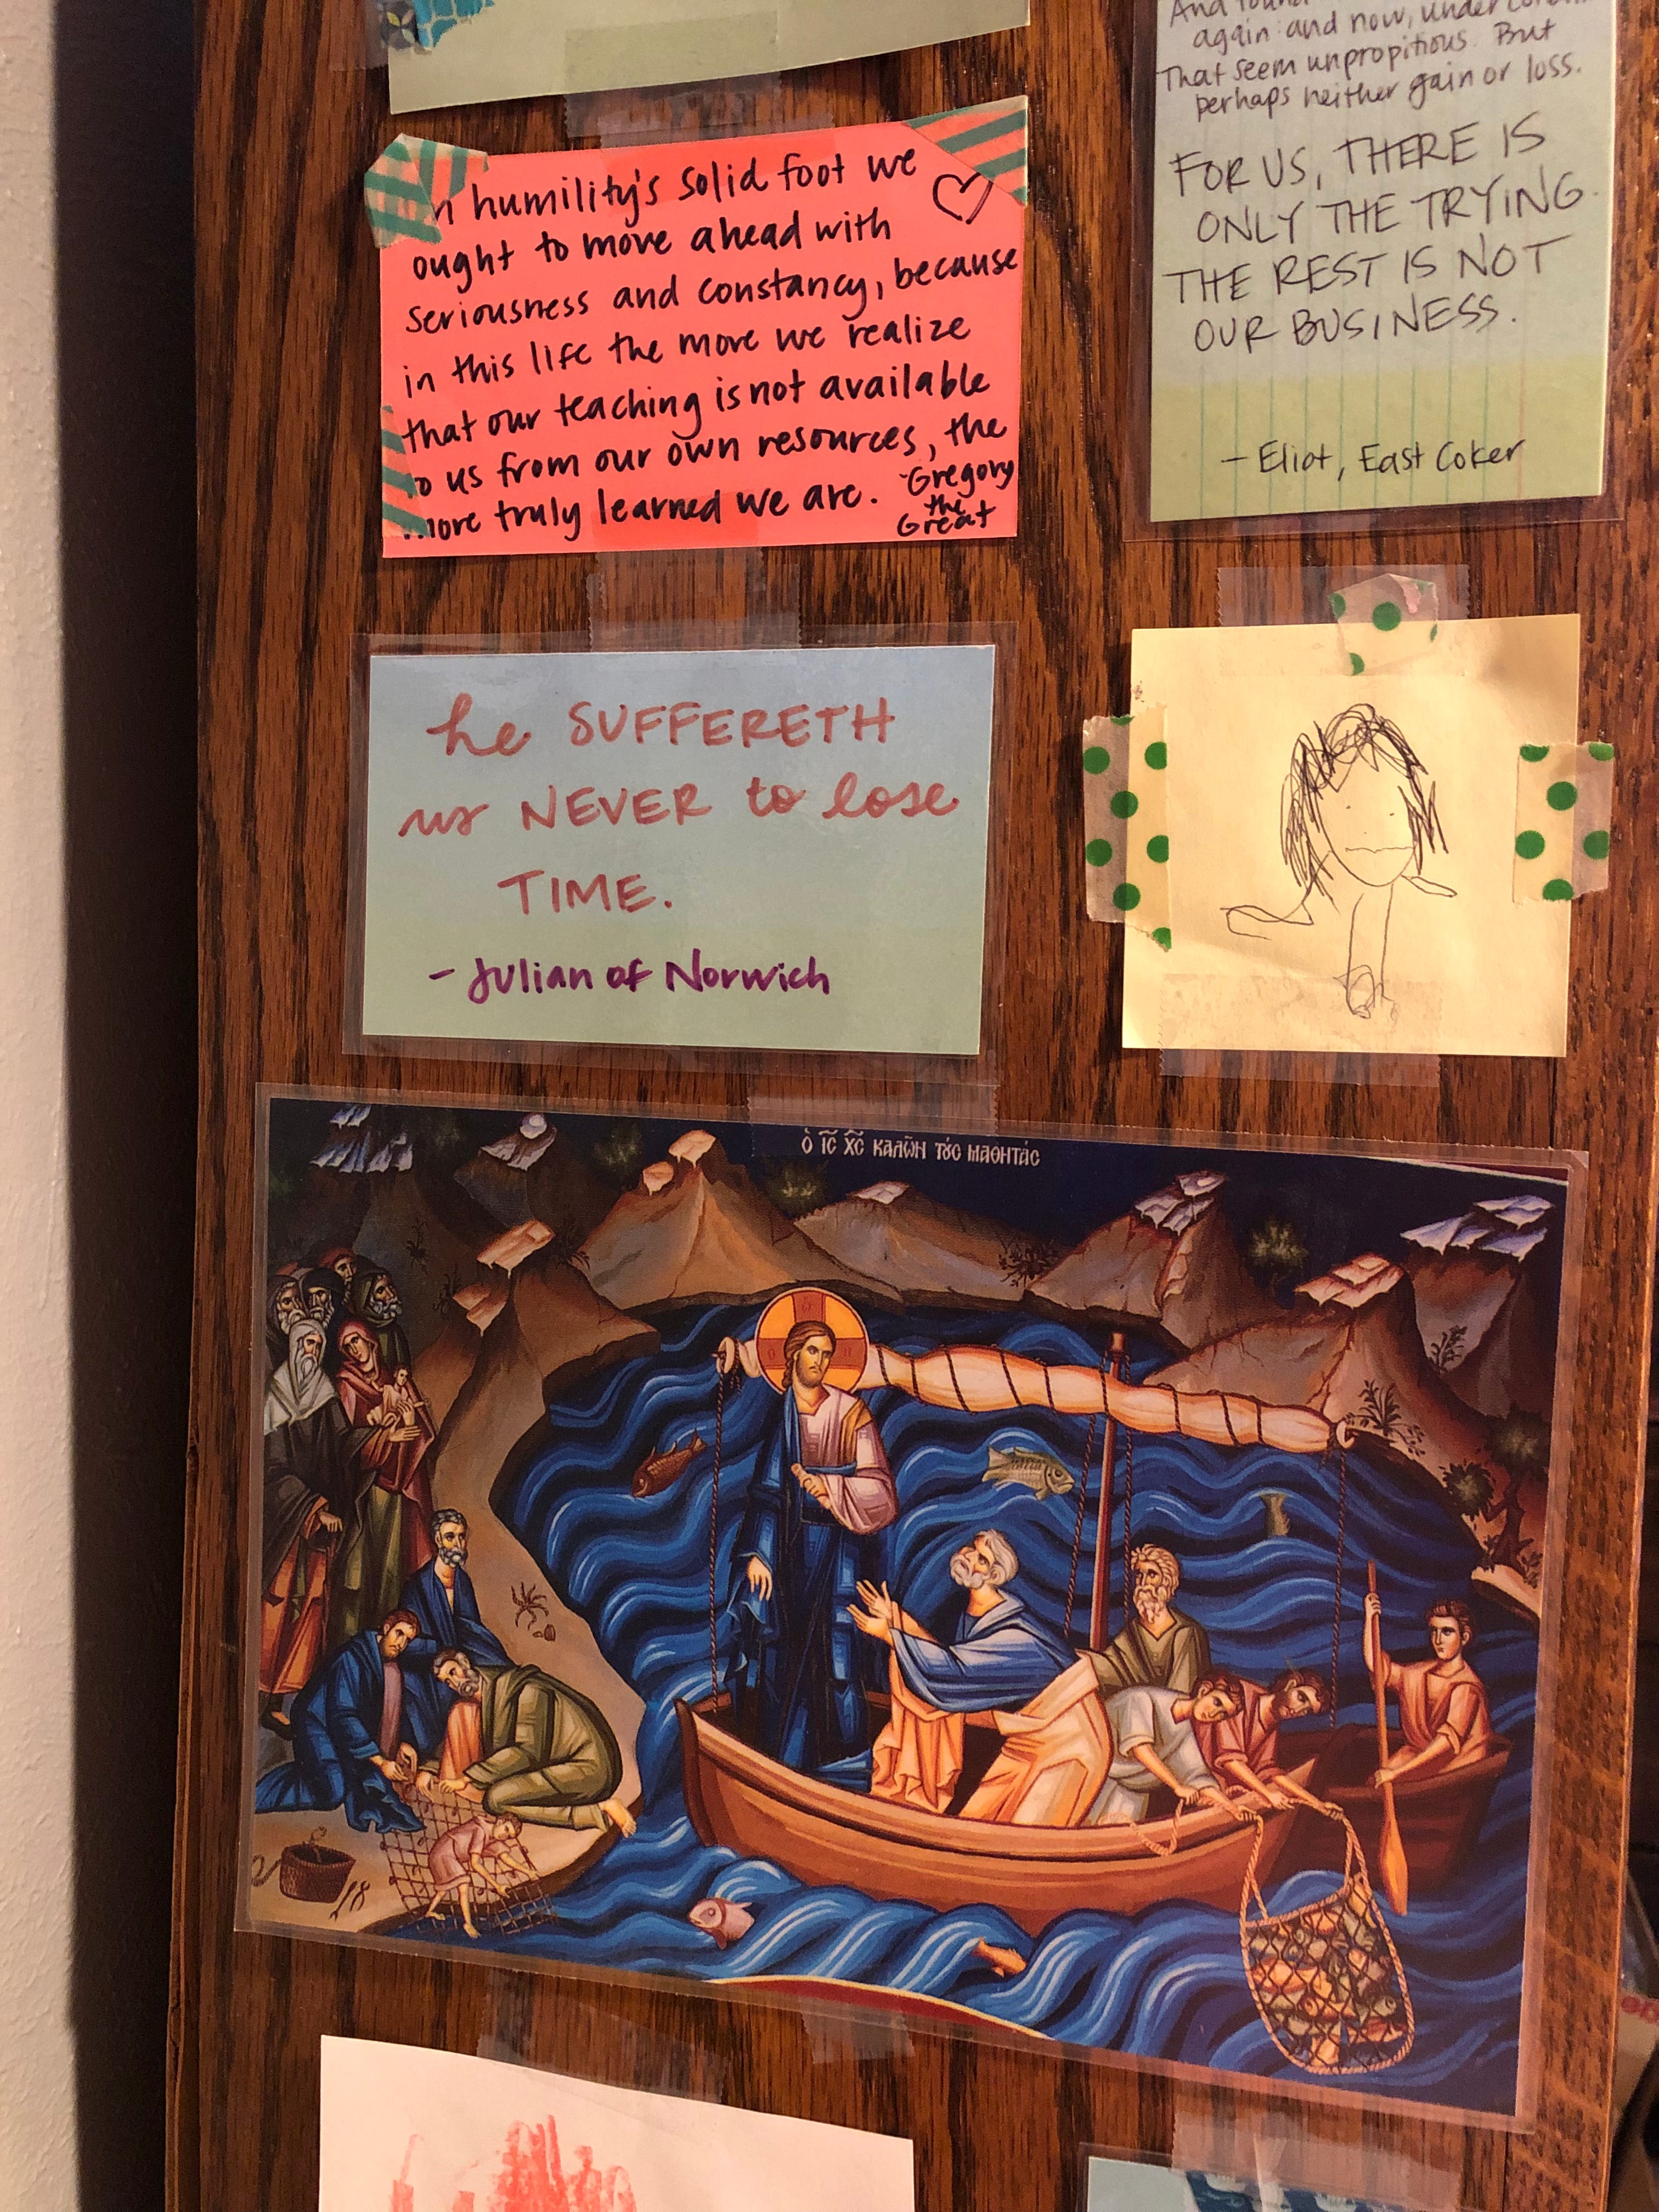 humility's solid foot we
ought to move ahead with
seriousness and constancy, because
in this life the more we realize
that our teaching is not available
to us from our own resources, the
more truly learned we are. -Gregory
the
Great
And found
again: and now, under
That seem unpropitious. But
perhaps neither gain or loss.
FOR US, THERE IS
ONLY THE TRYING.
THE REST IS NOT
OUR BUSINESS.
- Eliot, East Coker
he SUFFERETH
us NEVER to lose
TIME.
- Julian of Norwich
Ὁ ΙC ΧC ΚΑΛῶΝ ΤȣC ΜΑΘΗΤάC